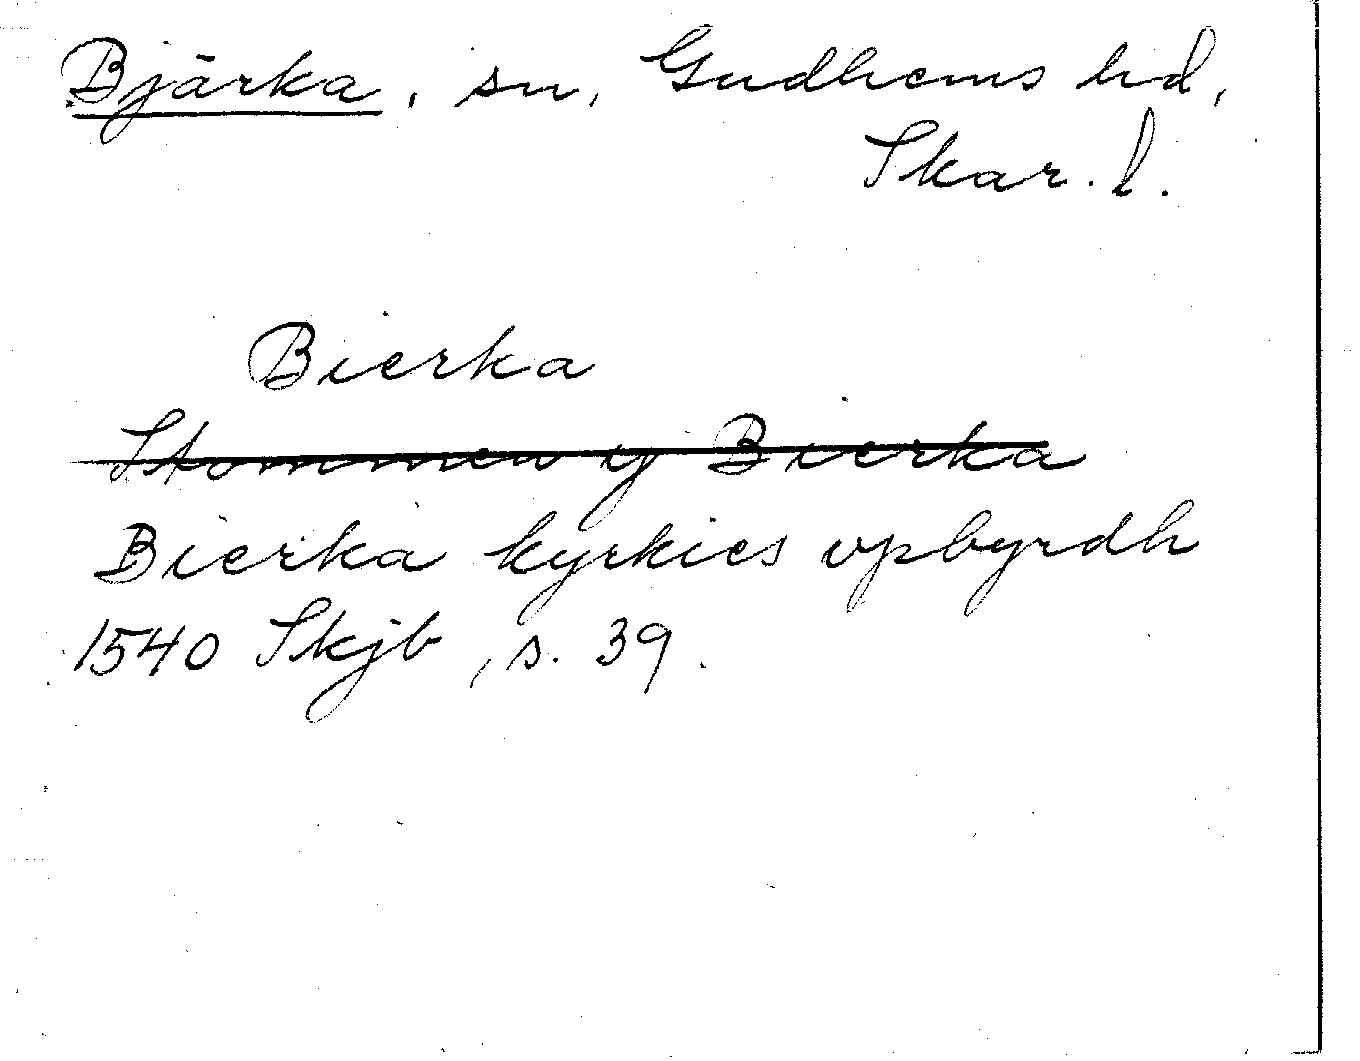 Bjärka, sn, Gudhems hd,
Skar. l.
Bierka
Stommen y Bierka
Bierka kyrkies vpbyrdh
1540 Skjb, s. 39.